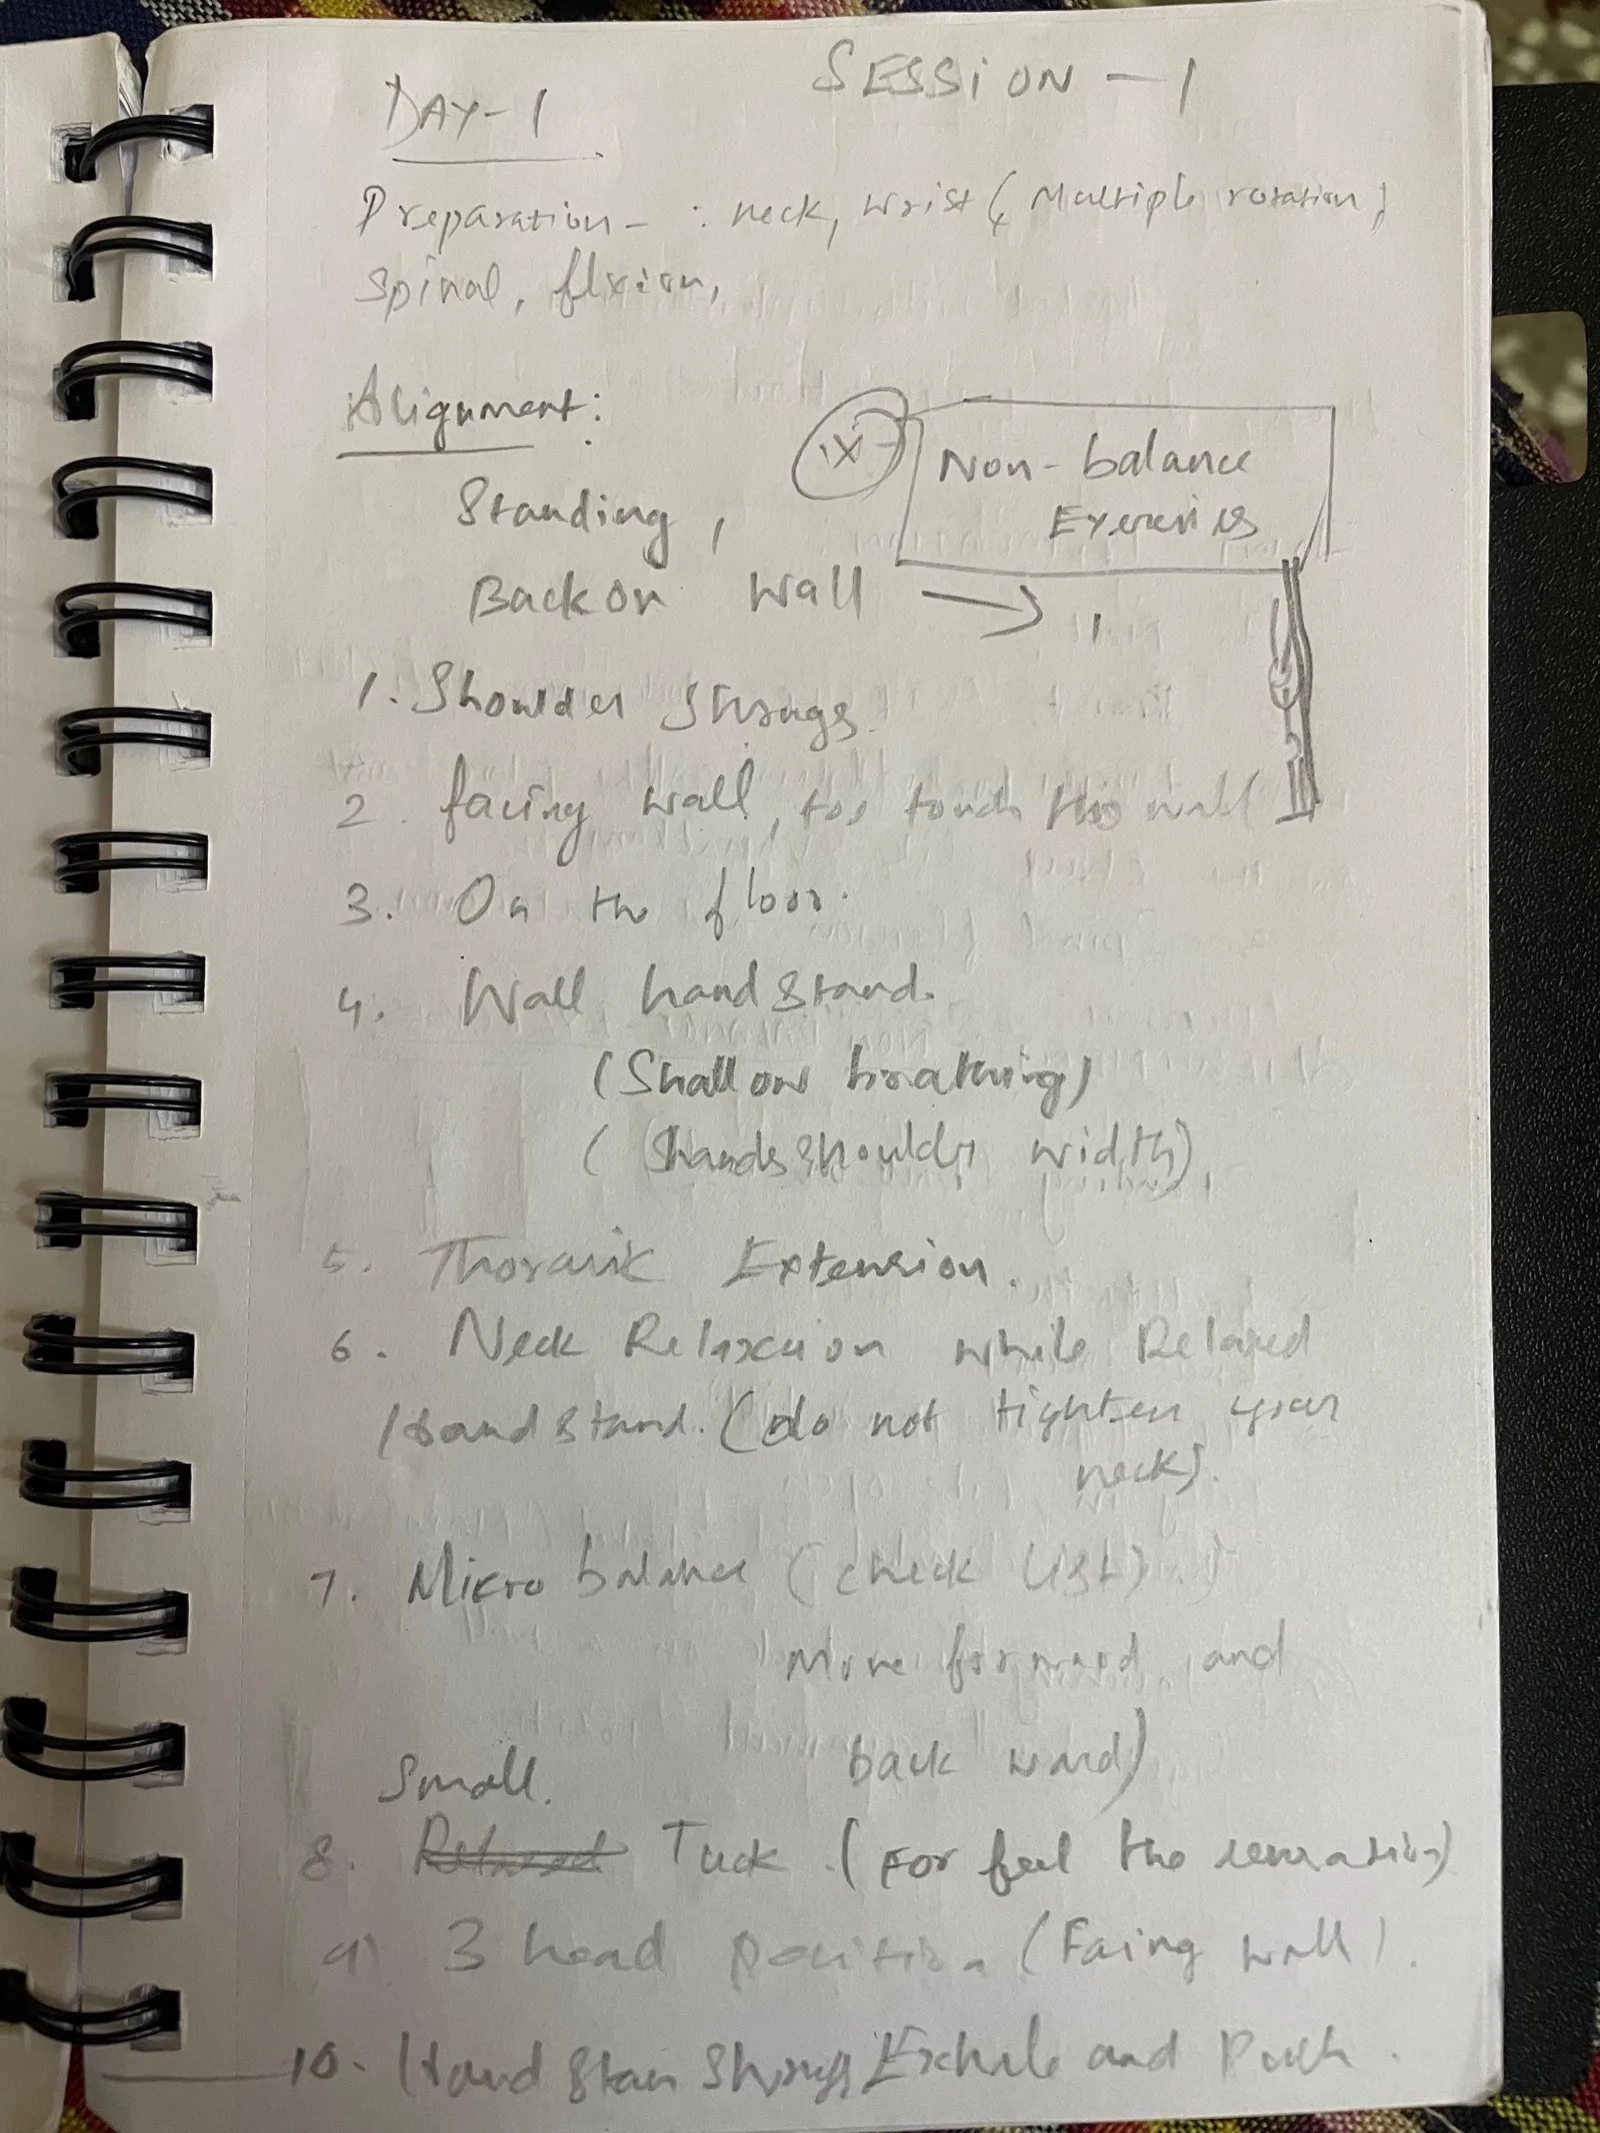 DAY-1
SESSION - 1
Preparation - : neck, wrist (Multiple rotation)
Spinal, flxion,
Alignment:
IX
Non-balance
Exercises
Standing,
Back on wall → 1
1. Shoulder Shrugs.
2. facing wall, toe touch the wall
3. On the floor.
4. Wall handstand.
(Shallow breathing)
(hands shoulder width)
5. Thoracic Extension.
6. Neck Relaxation while Relaxed
Handstand. (do not tighten your
neck).
7. Micro balance (check list)
Move forward and
backward)
Small.
8. Relaxed Tuck (For feel the sensation)
9. 3 head position (Facing wall).
10. Hand Stan Shrugs Exhale and Push.